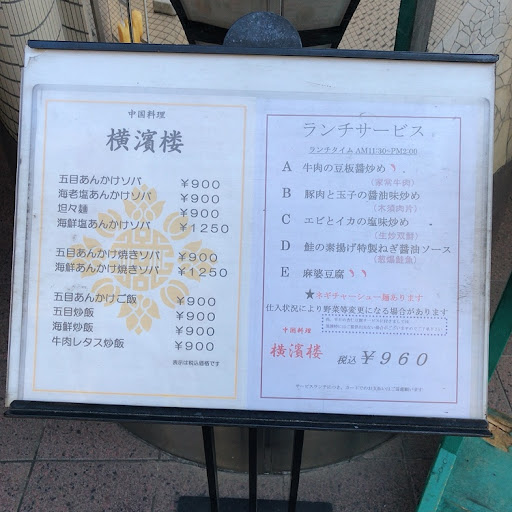 中国料理
横濱楼
五目あんかけソバ ￥900
海老塩あんかけソバ ￥900
坦々麺 ￥900
海鮮塩あんかけソバ ￥1250
五目あんかけ焼きソバ ￥900
海鮮あんかけ焼きソバ ￥1250
五目あんかけご飯 ￥900
五目炒飯 ￥900
海鮮炒飯 ￥900
牛肉レタス炒飯 ￥900
表示は税込価格です
ランチサービス
ランチタイム AM11:30~PM2:00
A 牛肉の豆板醤炒め
(家常牛肉)
B 豚肉と玉子の醤油味炒め
(木須肉片)
C エビとイカの塩味炒め
(生炒双鮮)
D 鮭の素揚げ特製ねぎ醤油ソース
(葱爆鮭魚)
E 麻婆豆腐
★ネギチャーシュー麺あります
仕入状況により野菜等変更になる場合があります
中国料理
横濱楼
税込 ￥960